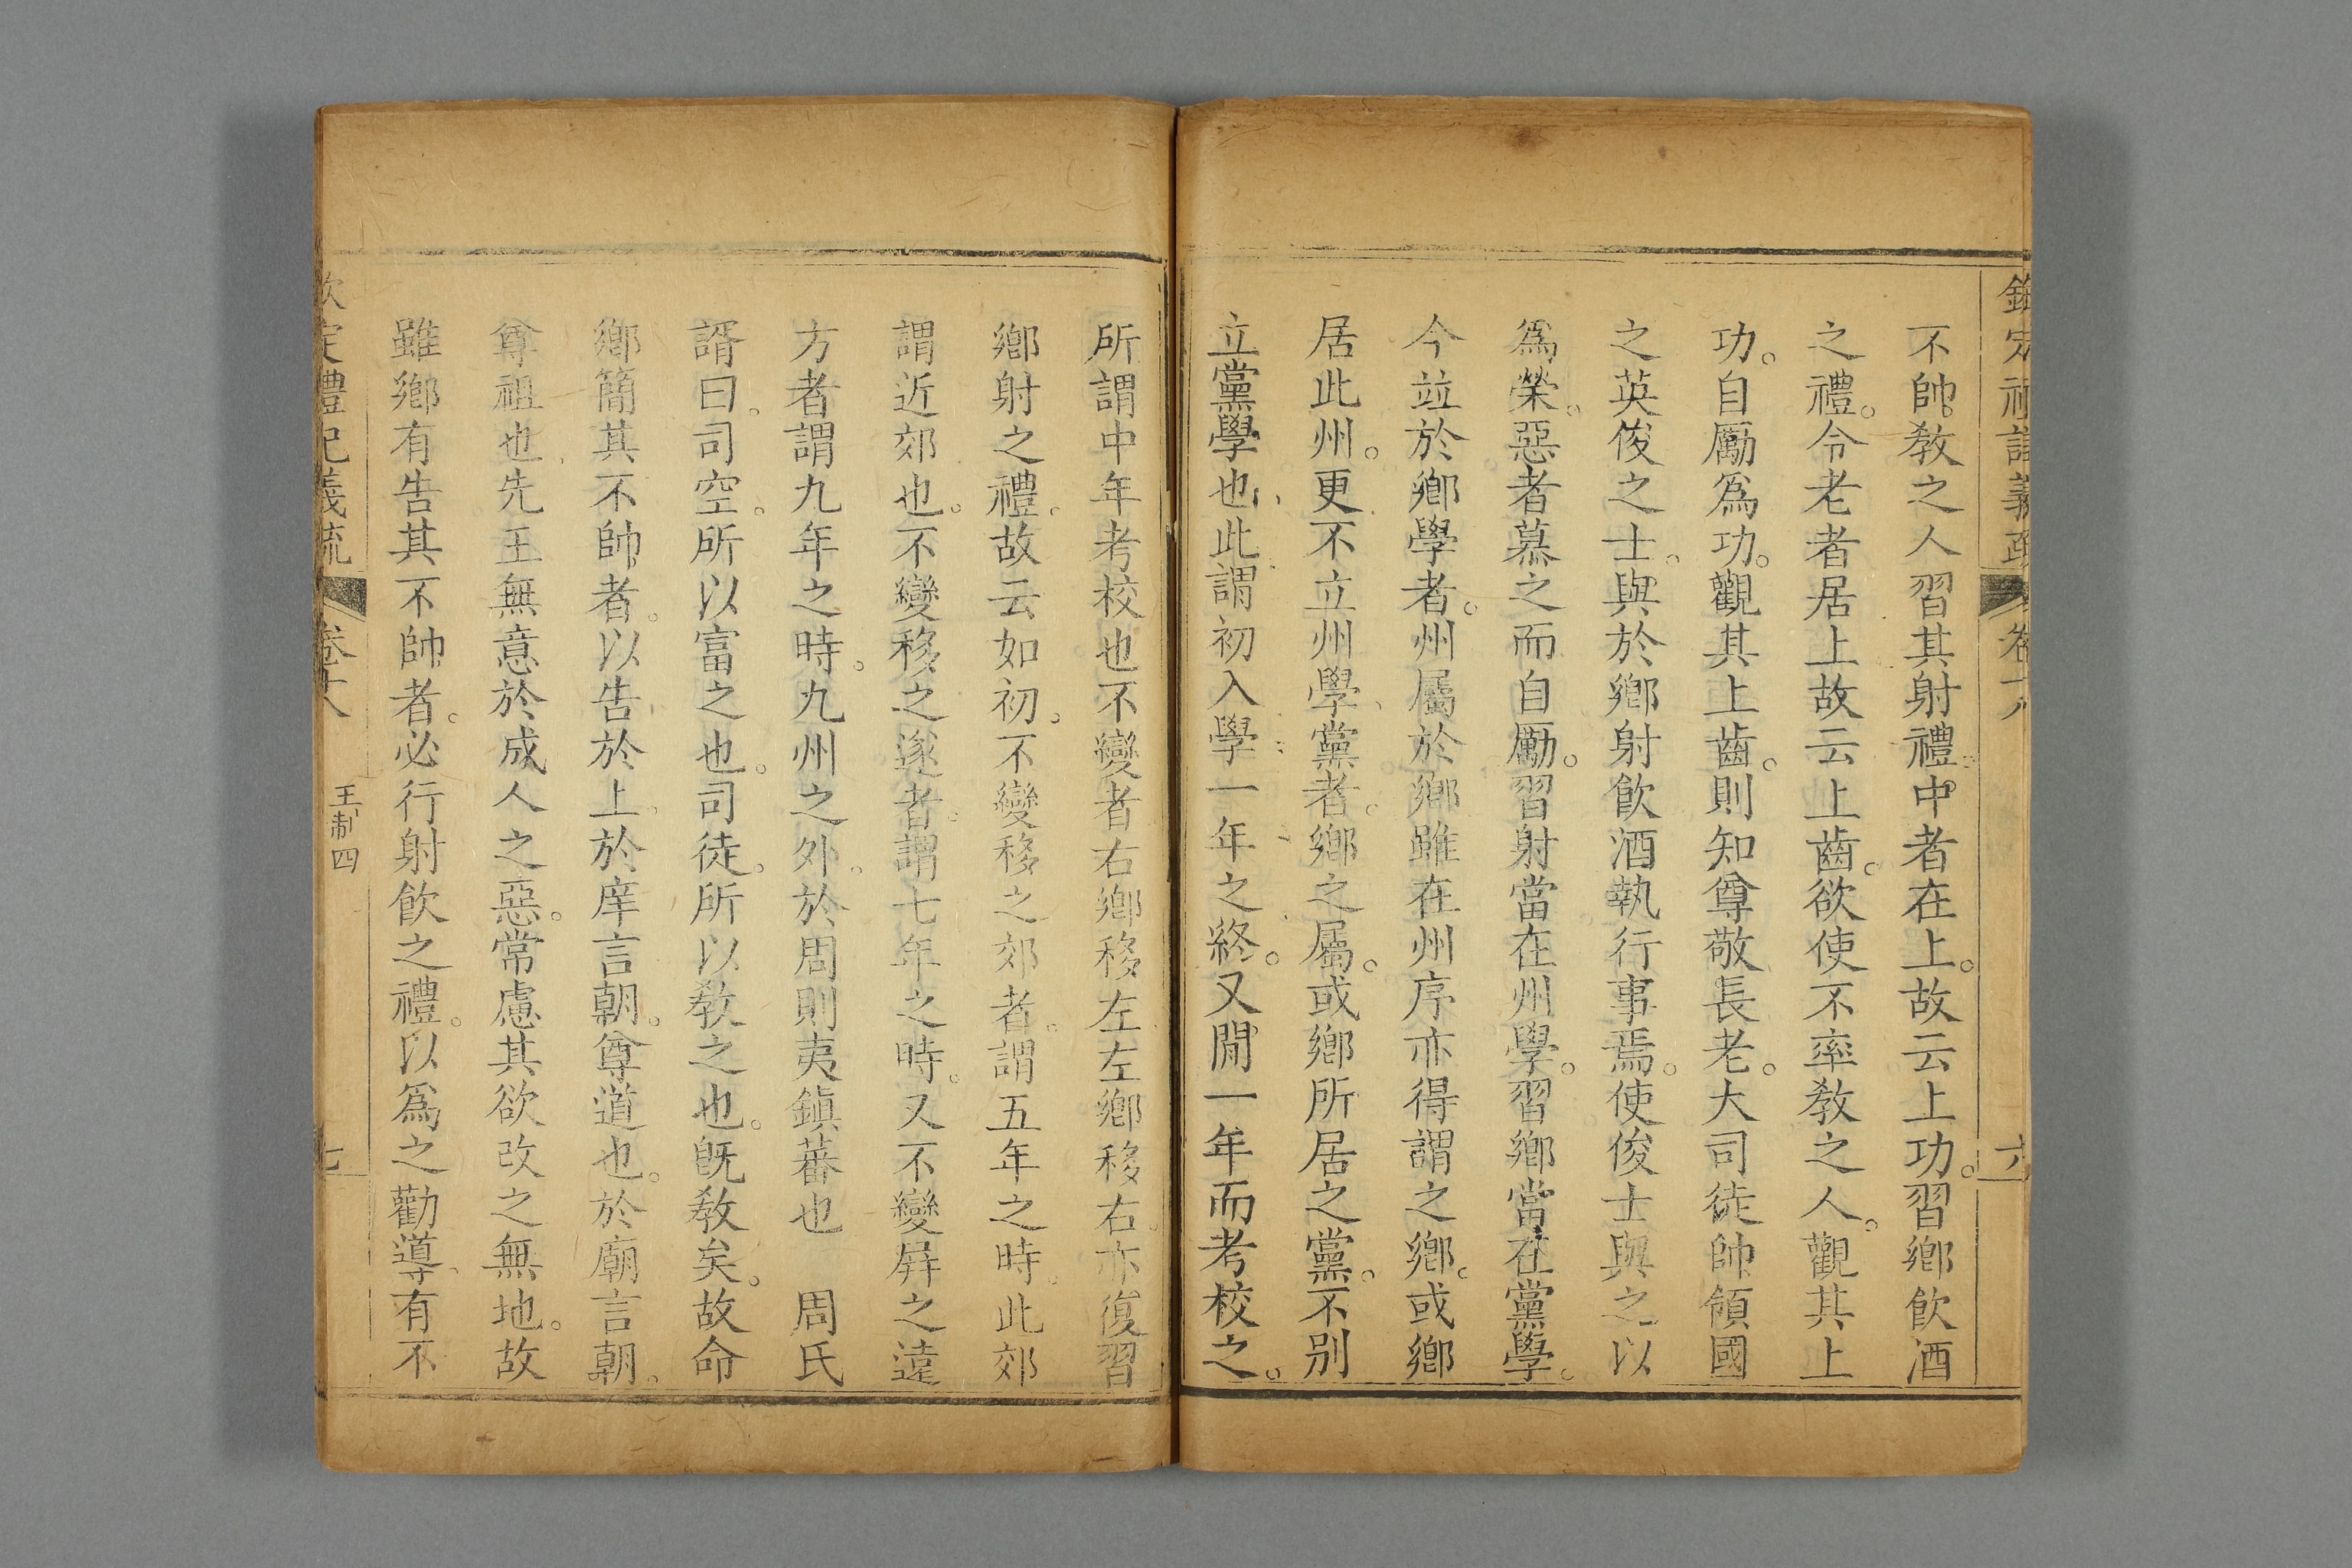 欽定禮記義疏 卷十八 六
不帥教之人習其射禮。中者在上。故云上功。習鄉飲酒
之禮。令老者居上故云上齒。欲使不率教之人。觀其上
功。自勵爲功。觀其上齒。則知尊敬長老。大司徒帥領國
之英俊之士。與於鄉射飲酒執行事焉。使俊士與之以
爲榮。惡者慕之而自勵。習射當在州學。習鄉當在黨學。
今竝於鄉學者。州屬於鄉雖在州序亦得謂之鄉。或鄉
居此州。更不立州學黨者。鄉之屬。或鄉所居之黨。不別
立黨學也此謂初入學一年之終。又閒一年而考校之。
所謂中年考校也不變者右鄉移左左鄉移右。亦復習
鄉射之禮。故云如初。不變移之郊者。謂五年之時。此郊
謂近郊也。不變移之遂者。謂七年之時。又不變屏之遠
方者謂九年之時。九州之外。於周則夷鎮蕃也 周氏
諝曰。司空。所以富之也。司徒。所以教之也。既教矣。故命
鄉簡其不帥者。以告於上。於庠言朝。尊道也。於廟言朝。
尊祖也先王無意於成人之惡。常慮其欲改之無地。故
雖鄉有告其不帥者。必行射飲之禮。以爲之勸導。有不
欽定禮記義疏 卷十八 王制四 七